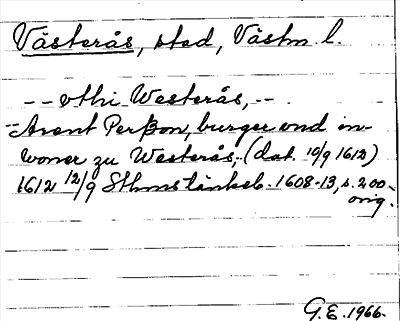 Västerås, stad, Västm. l.
-- vthi Westerås, --
-- Arent Perßon, burger vnd in-
woner zu Westerås, - (dat. 10/9 1612)
1612 12/9 Sthms tänkeb. 1608-13, s. 200
orig.
G.E. 1966.